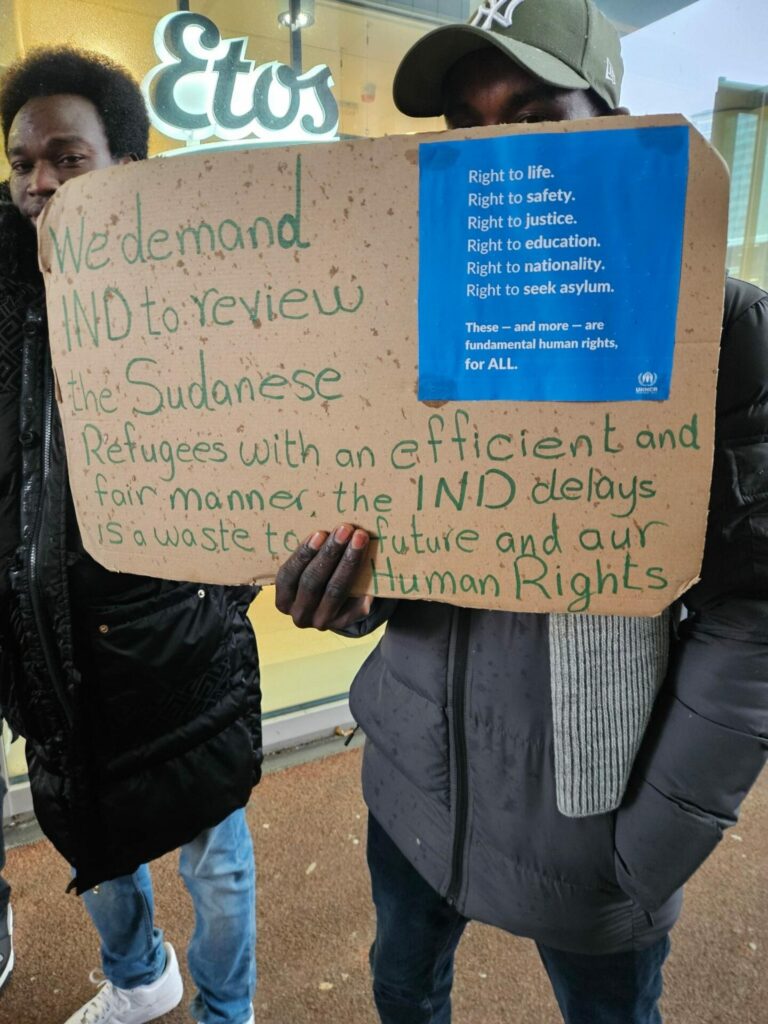 Etos
NY
We demand
IND to review
the Sudanese
Refugees with an efficient and
fair manner, the IND delays
is a waste to future and aur
Human Rights
Right to life.
Right to safety.
Right to justice.
Right to education.
Right to nationality.
Right to seek asylum.
These — and more — are
fundamental human rights,
for ALL.
UNHCR